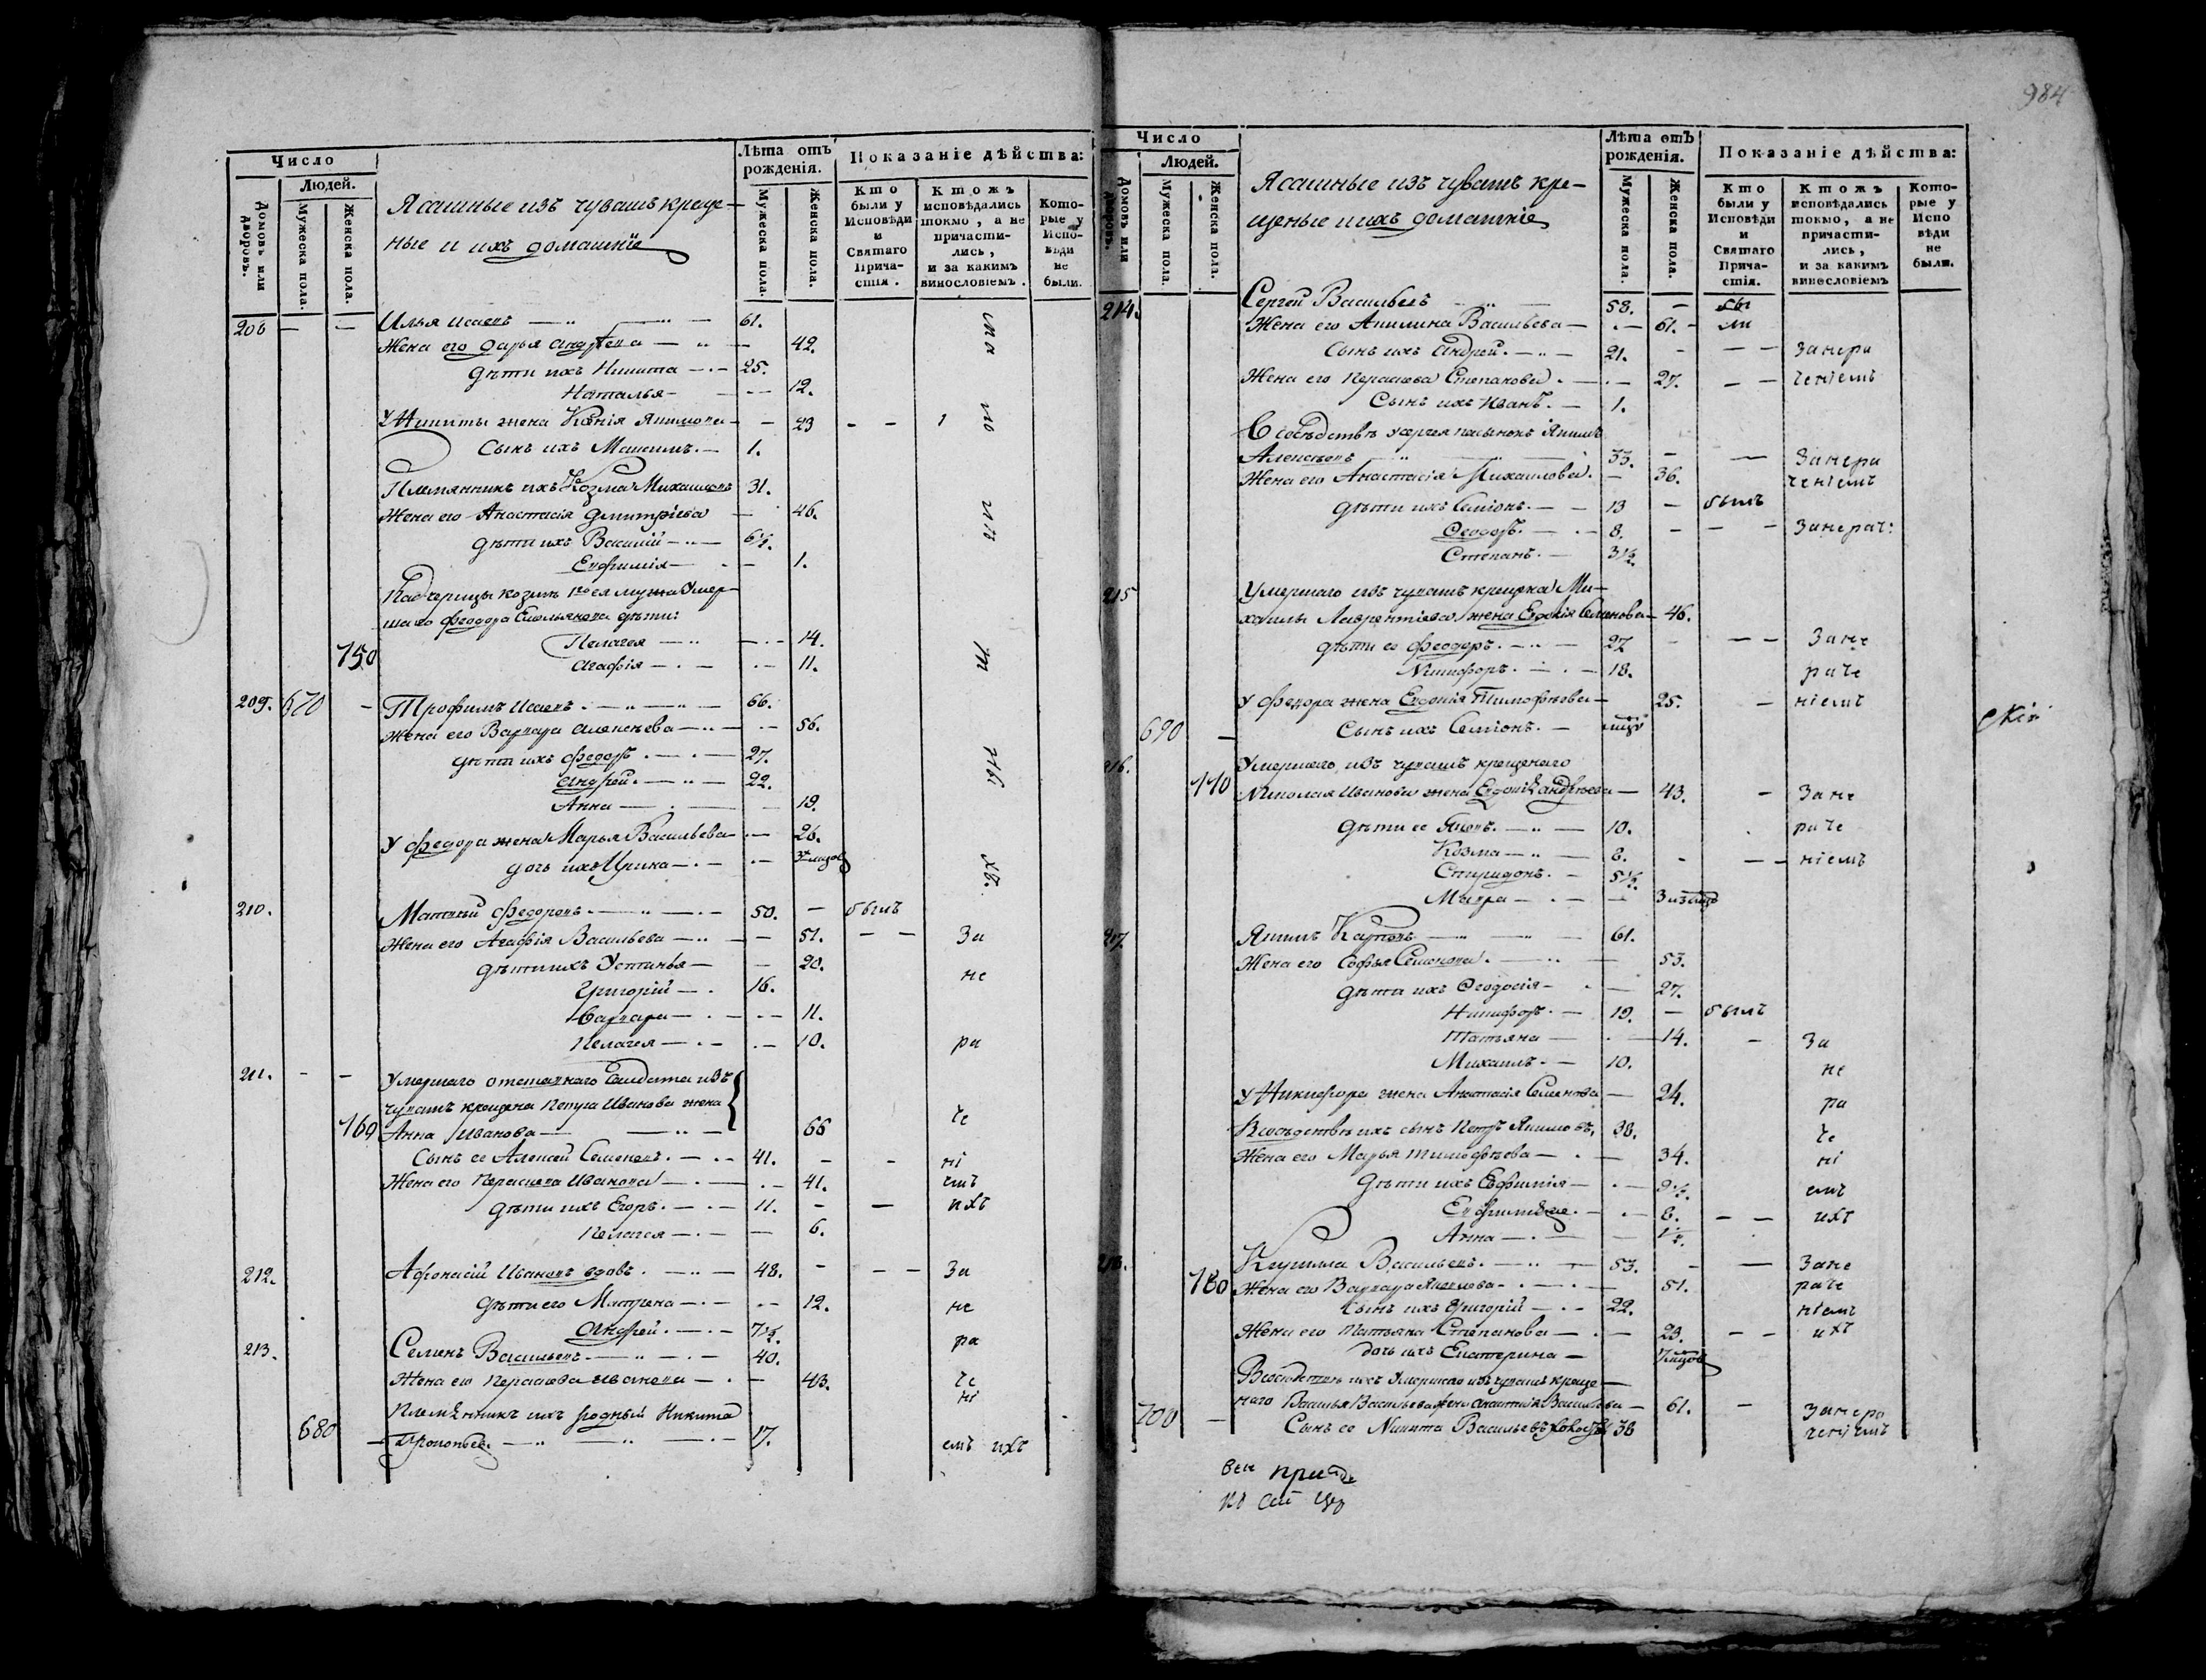 Число
Людей.
Домовъ или дворовъ.
Мужеска пола.
Женска пола.
Ясашные изъ чувашъ креще-
ные и ихъ домашніе
Лѣта отъ рожденія.
Мужеска пола.
Женска пола.
Показаніе дѣйства:
Кто были у Исповѣди и Святаго Причастія.
Ктожъ исповѣдались токмо, а не причасти-лись, и за какимъ винословіемъ.
Кото-рые у Испо-вѣди не были.
Илья Исаевъ 61.
Жена его Дарья Андреева 42.
дѣти ихъ Никита 25.
Наталья 12.
У Никиты жена 23
Сынъ ихъ Максимъ 1.
Племянникъ ихъ Козма Михаиловъ 31.
Жена его Анастасія Дмитріева 46.
дѣти ихъ Василій 6½.
Евфимія 1.
Падчерицы Козмы мужа умер-
шаго Феодора Емельянова дѣти:
Пелагея 14.
150 Агафія 11.
209. 670 Трофимъ Исаевъ 66.
Жена его Варвара Алексѣева 56.
дѣти ихъ Федоръ 27.
Андрей 22.
Анна 19.
У Федора жена Марья Васильева 26.
дочь ихъ Ирина
210. Матвѣй Федоровъ 50. былъ
Жена его Агафія Васильева 51. За
дѣти ихъ Устинья 20. не
Григорій 16.
Варвара 11.
Пелагея 10. ра
211. Умершаго отставнаго Салдата изъ
чувашъ крещена Иванова жена
160 Анна Иванова 66 че
Сынъ ее Алексей Семеновъ 41. ні
Жена его Парасковья Иванова 41. емъ
дѣти ихъ Егоръ 11. ихъ
Пелагея 6.
212. Афонасій Ивановъ вдовъ 48. За
дѣти его Матрена 12. не
Андрей 7½. ра
213. Семенъ Васильевъ 40.
Жена его Параскева Иванова 43. че
ні
Племянникъ ихъ родный Никита
680 Прокопьевъ 17. емъ ихъ
984
Число
Людей.
Домовъ или дворовъ.
Мужеска пола.
Женска пола.
Ясашные изъ чувашъ кре-
щеные и ихъ домашніе
Лѣта отЪ рожденія.
Мужеска пола.
Женска пола.
Показаніе дѣйства:
Кто были у Исповѣди и Святаго Прича-стія.
Ктожъ исповѣдались токмо, а не причасти-лись, и за какимъ винословіемъ
Кото-рые у Испо вѣди не были.
214. Сергей Васильевъ 58. бы
Жена его Акилина Васильева 61. ли
Сынъ ихъ Андрей 21. Занера
Жена его Параскева Степанова 27. ченіемъ
Сынъ ихъ Иванъ 1.
В сосѣдствѣ у Сергея пасынокъ Якимъ
Алексѣевъ 33. Занера
Жена его Анастасія Михаилова 36. ченіемъ
дѣти ихъ Семіонъ 13 былъ
Феодоръ 8. Занерач:
Степанъ 3½.
215 Умершаго изъ чувашъ крещена Ми-
хаилы Лаврентіева жена Евдокія Семенова 46.
дѣти ее Феодоръ 27 Зане
Никифоръ 18. раче
У Федора жена Евдокія Тимофѣева 25. ніемъ
690 Сынъ ихъ Семіонъ
216. Умершаго изъ чувашъ крещенаго
170 Николая Иванова жена Евдокія Андрѣева 43. Зане
дѣти ее Яковъ 10. раче
Козма 8. ніемъ
Спиридонъ 5½.
Мавра
217. Якимъ Карповъ 61.
Жена его Софья Семенова 53.
дѣти ихъ Феодосія 27.
Никифоръ 19. былъ
Татьяна 14. За
Михаилъ 10. не
У Никифора жена Анастасія Семенова 24. ра
В сосѣдствѣ ихъ сынъ Петръ Якимовъ 38. че
Жена его Марья Тимофѣева 34. ні
дѣти ихъ Евфимія 9½. емъ
8. ихъ
Анна
218. Васильевъ 53. Зане
180 Жена его Варвара Яковлева 51. раче
Сынъ ихъ Григорій 22. ніемъ
Жена его Татьяна Степанова 23. ихъ
дочь ихъ Екатерина
В сосѣдствѣ ихъ Умершаго изъ чувашъ креще-
наго Василья Васильева жена Васильева 61. Занера
700 Сынъ ее Никита Васильевъ холостъ 38 ченіемъ